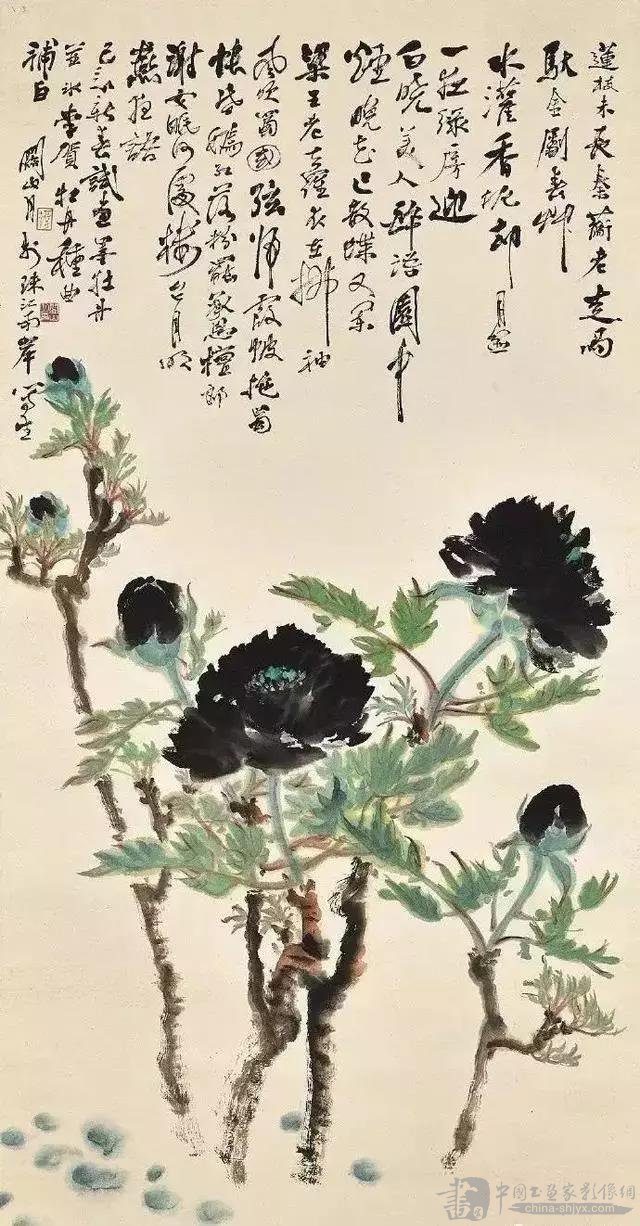 蓮枝未長秦蘅老走馬
馱金劚春艸
水灌香埿却月盘
一夜綠房迎
白曉美人醉語園中
煙晚花已散蝶又闌
梁王老去羅衣在拂袖
風吹蜀國弦歸霞帔拖蜀
帐昏嫣红落粉罷承恩檀郎
謝女眠何處樓台月明
燕夜語
新春試画墨牡丹
並录李賀牡丹種曲
補白
關山月於珠江南岸寫生
畫
中國書畫家影像網
china-shjyx.com